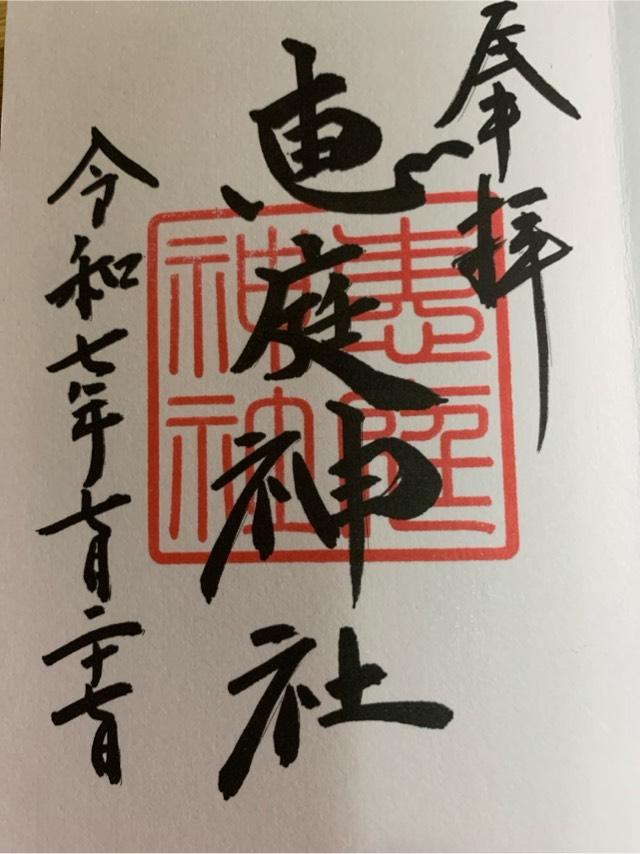 奉拝
恵庭神社
恵庭
神社
令和七年七月二十七日